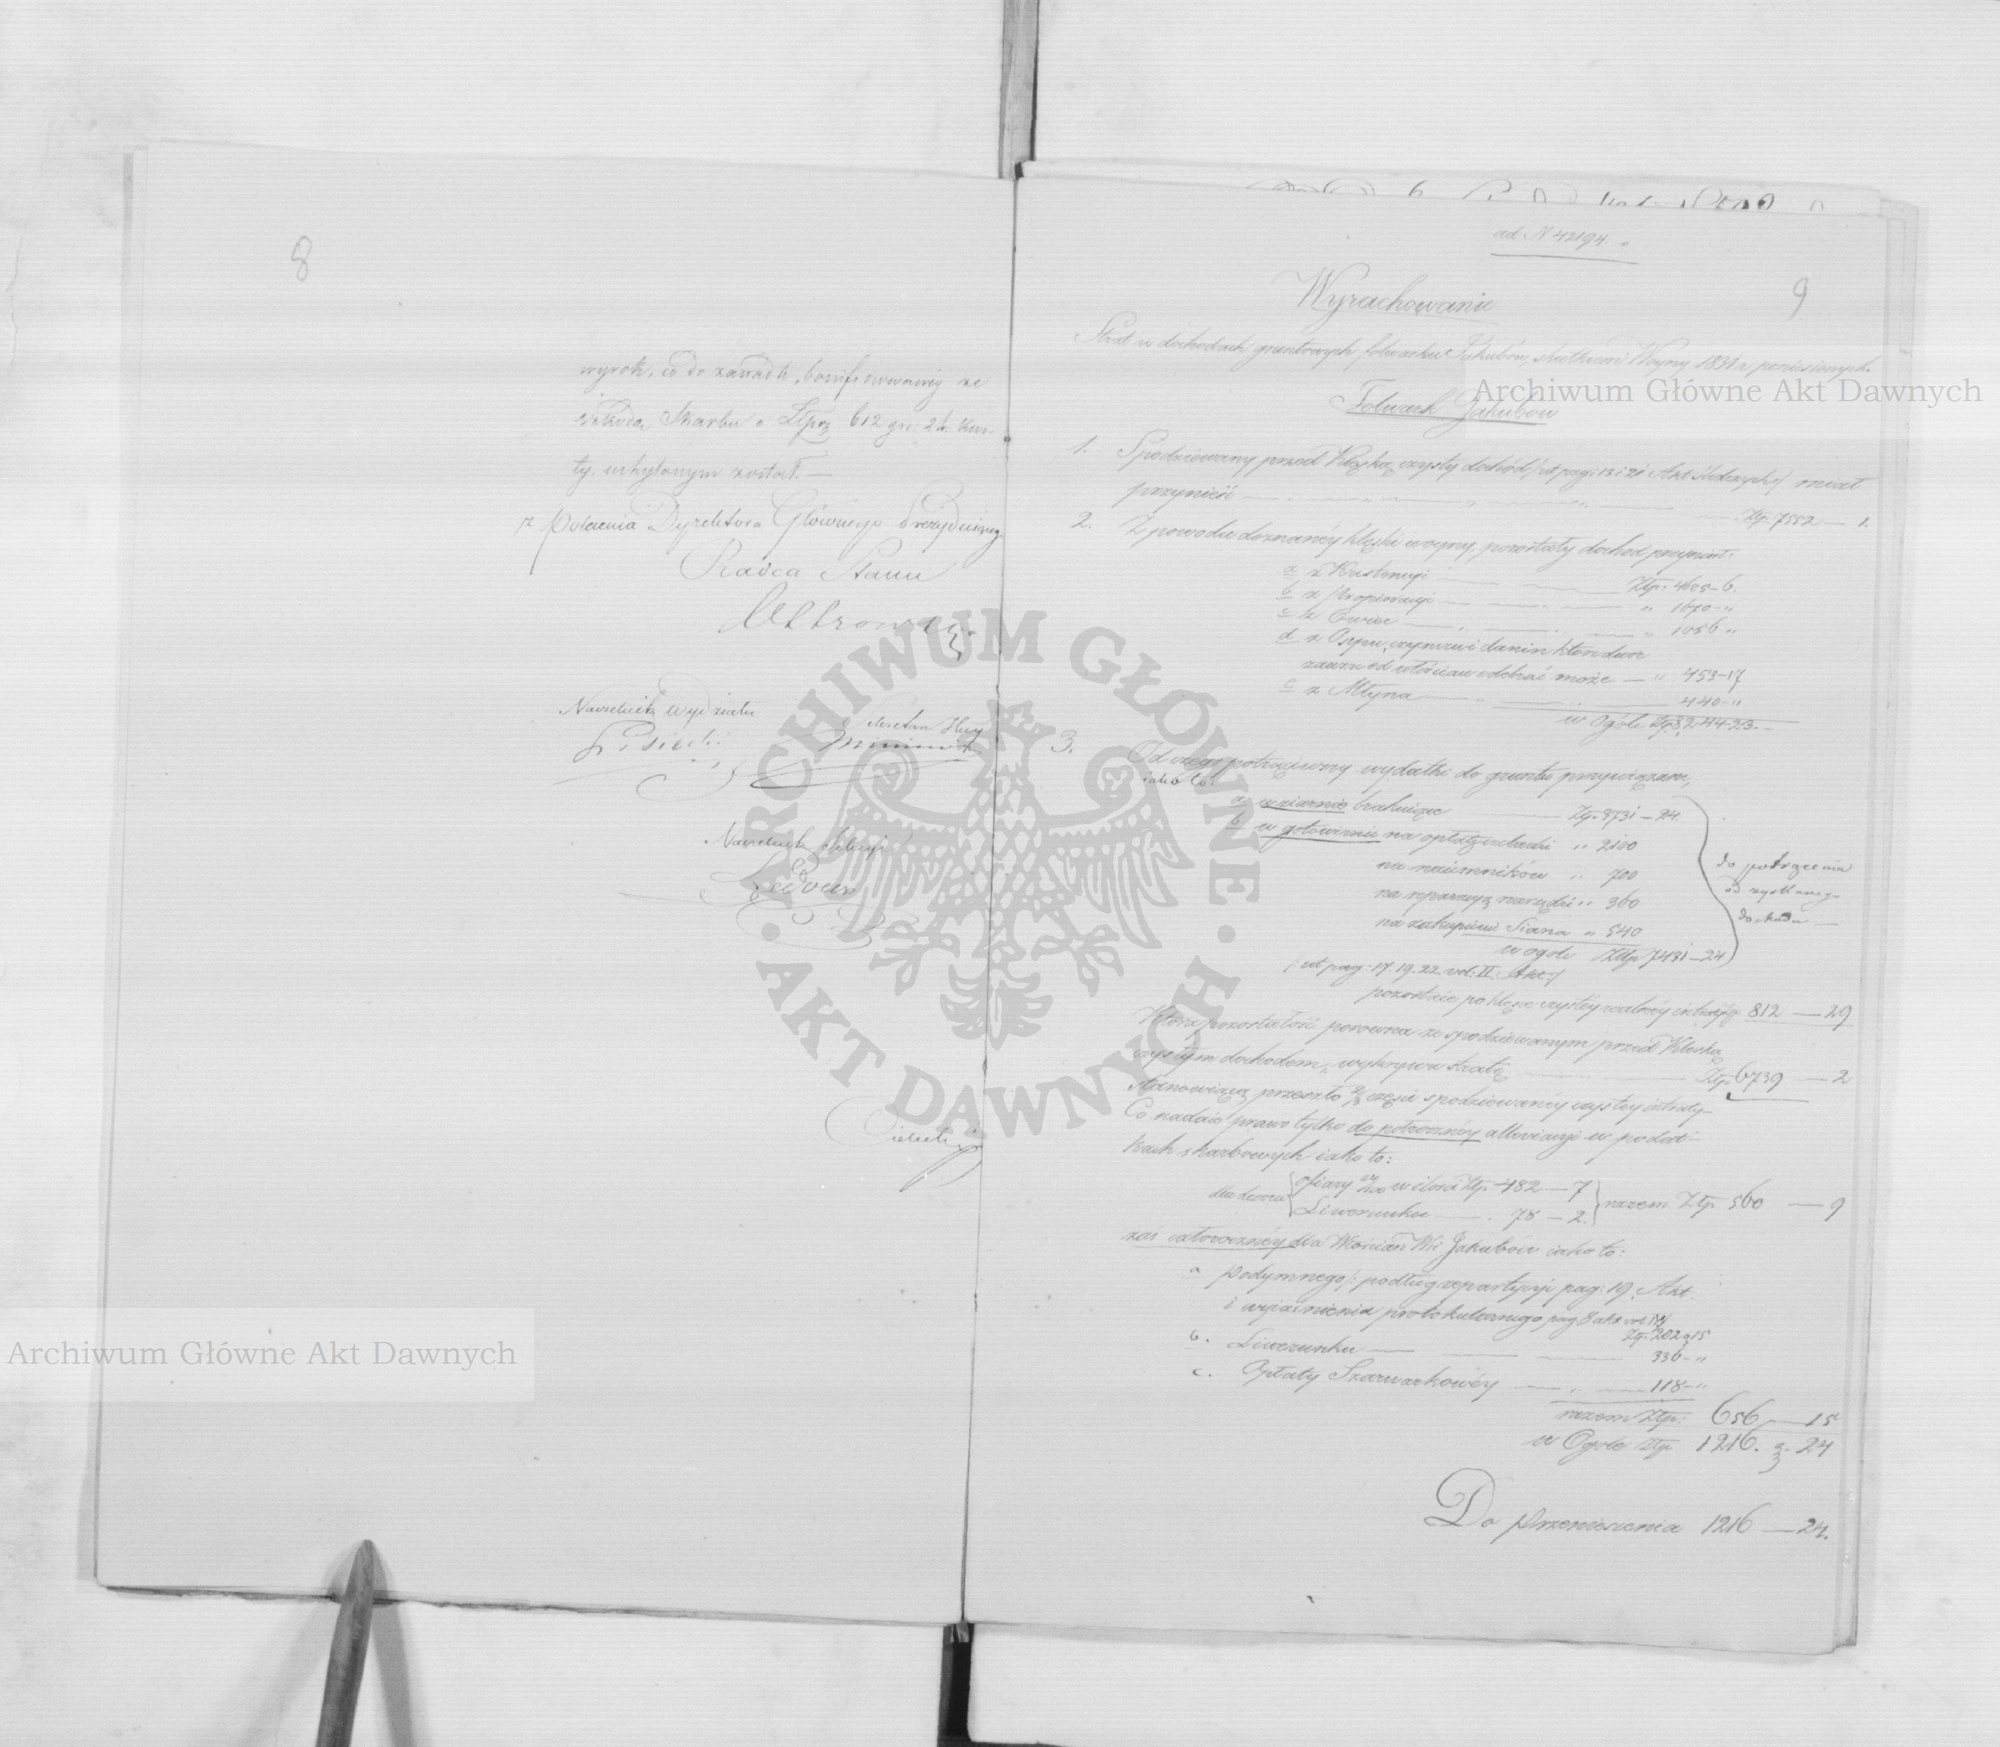 8
wyrok, co do zasady, bonifikowania ze
Skarbu o Złp. 612 gr. 24. kwo-
ty, uchylonym został. —
z Polecenia Dyrektora Głównego Prezydującego
Radca Stanu
Naczelnik Wydziału
Naczelnik Sekcyi
ad N 42194.
9
Wyrachowanie
Strat w dochodach gruntowych folwarku Jakubów, skutkiem Woyny 1831 r. poniesionych.
Folwark Jakubów
1. Spodziewany przed Klęską czysty dochód /: ut pag: 13 i 21 Akt śledczych :/ miał
przynieść — Złp. 7552 — 1.
2. Z powodu doznanéy klęski woyny, pozostały dochod
a z Krestencyi — Złp. 4605-6.
b z Propinacyi — " 1670-"
c z Owiec — " 1056 "
d z Osepu, czynszu i danin które dwor
zawsze od włościan odebrać może — " 453-17
e z Młyna — 440-"
w Ogóle Złp. 8,244-23.-
3. Od czego potrąciwszy wydatki do gruntu przywiązane,
iako to:
a w ziarnie brakuiące — Złp. 3731 - 24.
b w gotowiźnie na opłatę czeladzi " 2100
na naiemników " 700
na reparacyą narzędzi " 360
na zakupienie Siana " 540
w ogóle Złp. 7431 - 24
do potrącenia
od uzyskanego
dochodu —
/: ut pag: 17. 19. 22. vol: II. Akt :/
pozostaie po klęsce czystéy realnéy intraty Złp. 812 — 29
Która pozostałość porównana ze spodziewanym przed Klęską
czystym dochodem, wykrywa stratę — Złp. 6739 — 2
stanowiącą przeszło 2/3 części spodziewanéy czystey intraty
Co nadaie prawo tylko do półrocznéy allewiacyi w podat-
kach skarbowych iako to:
dla dworu
ofiary 24/100 wilości Złp. 482 — 7
Liwerunku — . 78 — 2.
razem Złp. 560 — 9
zaś całorocznéy dla Włościan Wsi Jakubów iako to:
a podymnego /: podług repartycyi pag: 19. Akt
i wyiaśnienia protokularnego pag. 8 akt vol. IV/
Złp. 202 g 15
b. Liwerunku — 336-"
c. Opłaty Szarwarkowéy — 118-"
razem Złp. 656 — 15
w Ogóle Złp. 1216. g. 24
Do przeniesienia 1216 — 24.
Archiwum Główne Akt Dawnych
Archiwum Główne Akt Dawnych
ARCHIWUM GŁÓWNE · AKT DAWNYCH ·